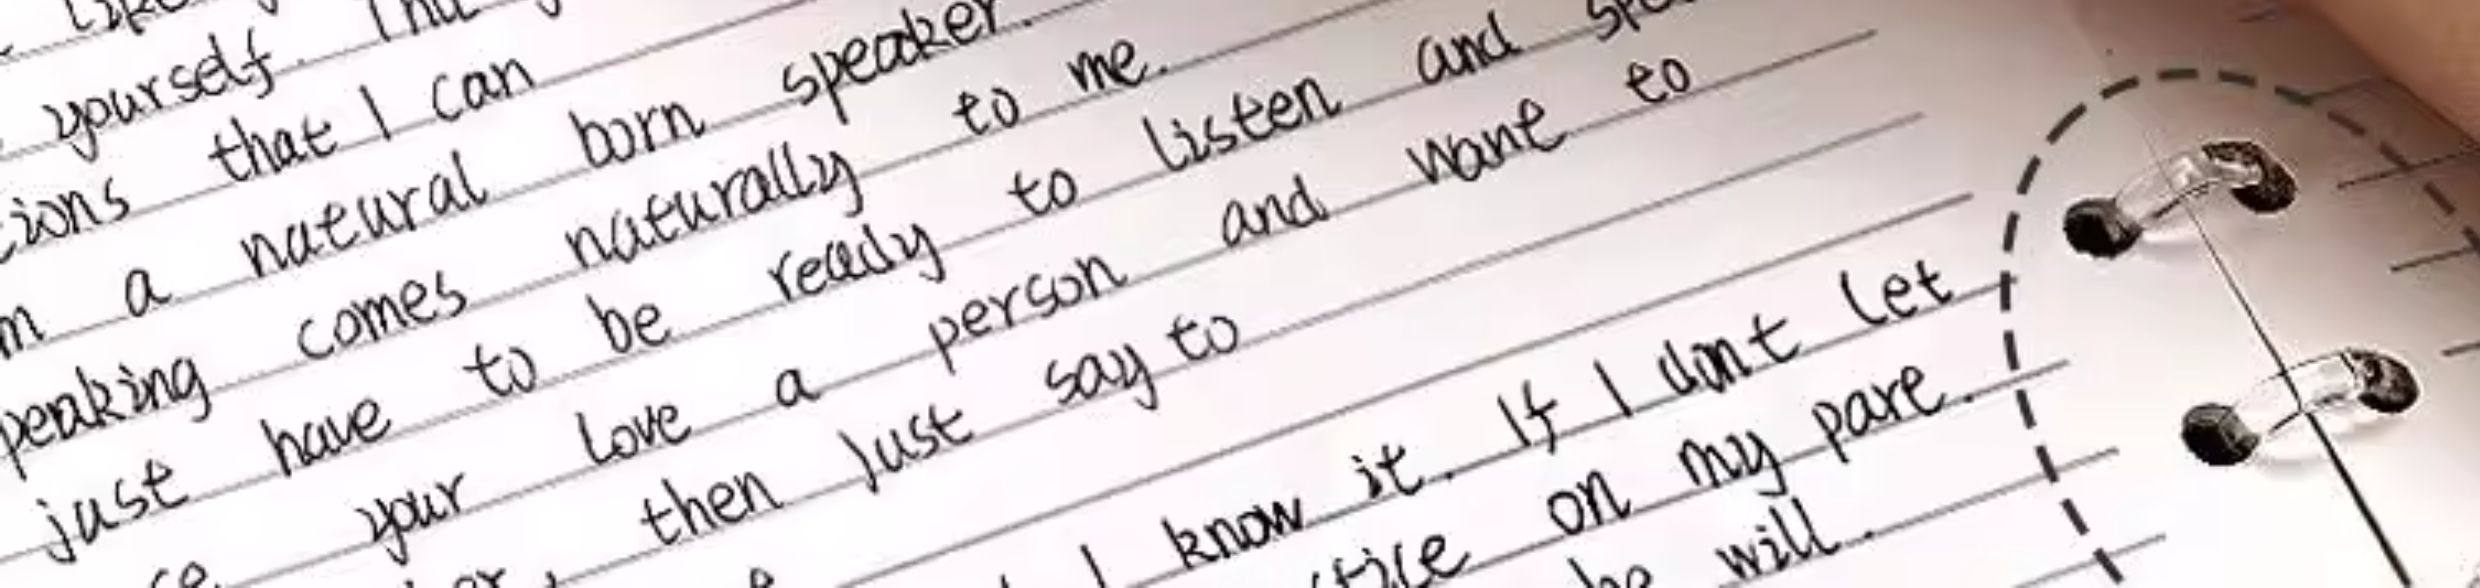 yourself.
that I can
a natural born speaker.
comes naturally to me.
just have to be ready to listen and
your love a person and want to
then just say to
I know it. If I dont let
on my pare.
will.